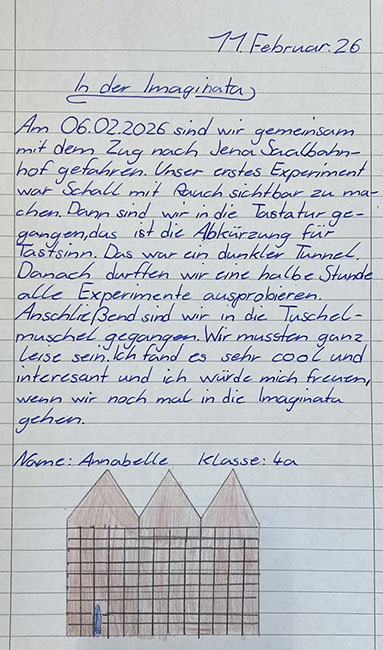 11. Februar. 26
In der Imaginata
Am 06.02.2026 sind wir gemeinsam
mit dem Zug nach Jena Saalbahn-
hof gefahren. Unser erstes Experiment
war Schall mit Rauch sichtbar zu ma-
chen. Dann sind wir in die Tastatur ge-
gangen, das ist die Abkürzung für
Tastsinn. Das war ein dunkler Tunnel.
Danach durften wir eine halbe Stunde
alle Experimente ausprobieren.
Anschließend sind wir in die Tuschel-
muschel gegangen. Wir mussten ganz
leise sein. Ich fand es sehr cool und
interesant und ich würde mich freuen,
wenn wir noch mal in die Imaginata
gehen.
Name: Annabelle Klasse: 4a